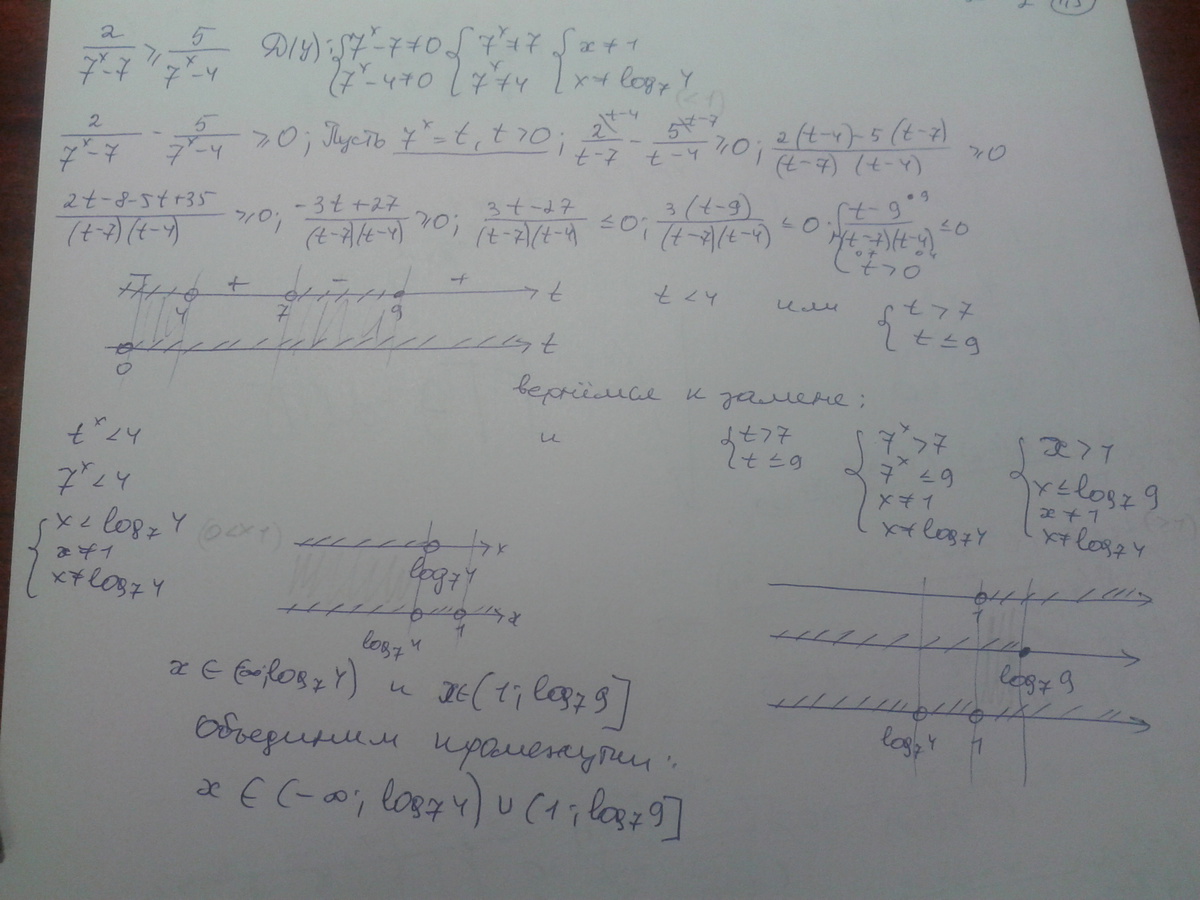 115
2/(7^x-7) ≥ 5/(7^x-4) Д(у): {7^x-7≠0 7^x-4≠0 {7^x≠7 7^x≠4 {x≠1 x≠log₇4
(<1)
2/(7^x-7) - 5/(7^x-4) ≥0; Пусть 7^x=t, t>0; 2\t-4/(t-7) - 5\t-7/(t-4) ≥0; (2(t-4)-5(t-7))/((t-7)(t-4)) ≥0
(2t-8-5t+35)/((t-7)(t-4)) ≥0; (-3t+27)/((t-7)(t-4)) ≥0; (3t-27)/((t-7)(t-4)) ≤0; 3(t-9)/((t-7)(t-4)) ≤0; {(t-9)/((t-7)(t-4)) ≤0 t>0
•9 °7 °4
- + - + t
4 7 9
t<4 или {t>7 t≤9
0 t
вернёмся к замене:
t^x<4 и {t>7 t≤9 {7^x>7 7^x≤9 x≠1 x≠log₇4 {x>1 x≤log₇9 x≠1 x≠log₇4
7^x<4
{x<log₇4 x≠1 x≠log₇4
(0<x<1)
log₇4 x
log₇4 1 x
1
log₇9
log₇4 1
x∈(-∞;log₇4) и x∈(1;log₇9]
Объединим промежутки:
x∈(-∞;log₇4)∪(1;log₇9]